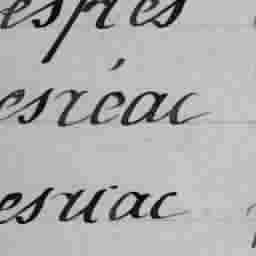 espres
esréac
esruac